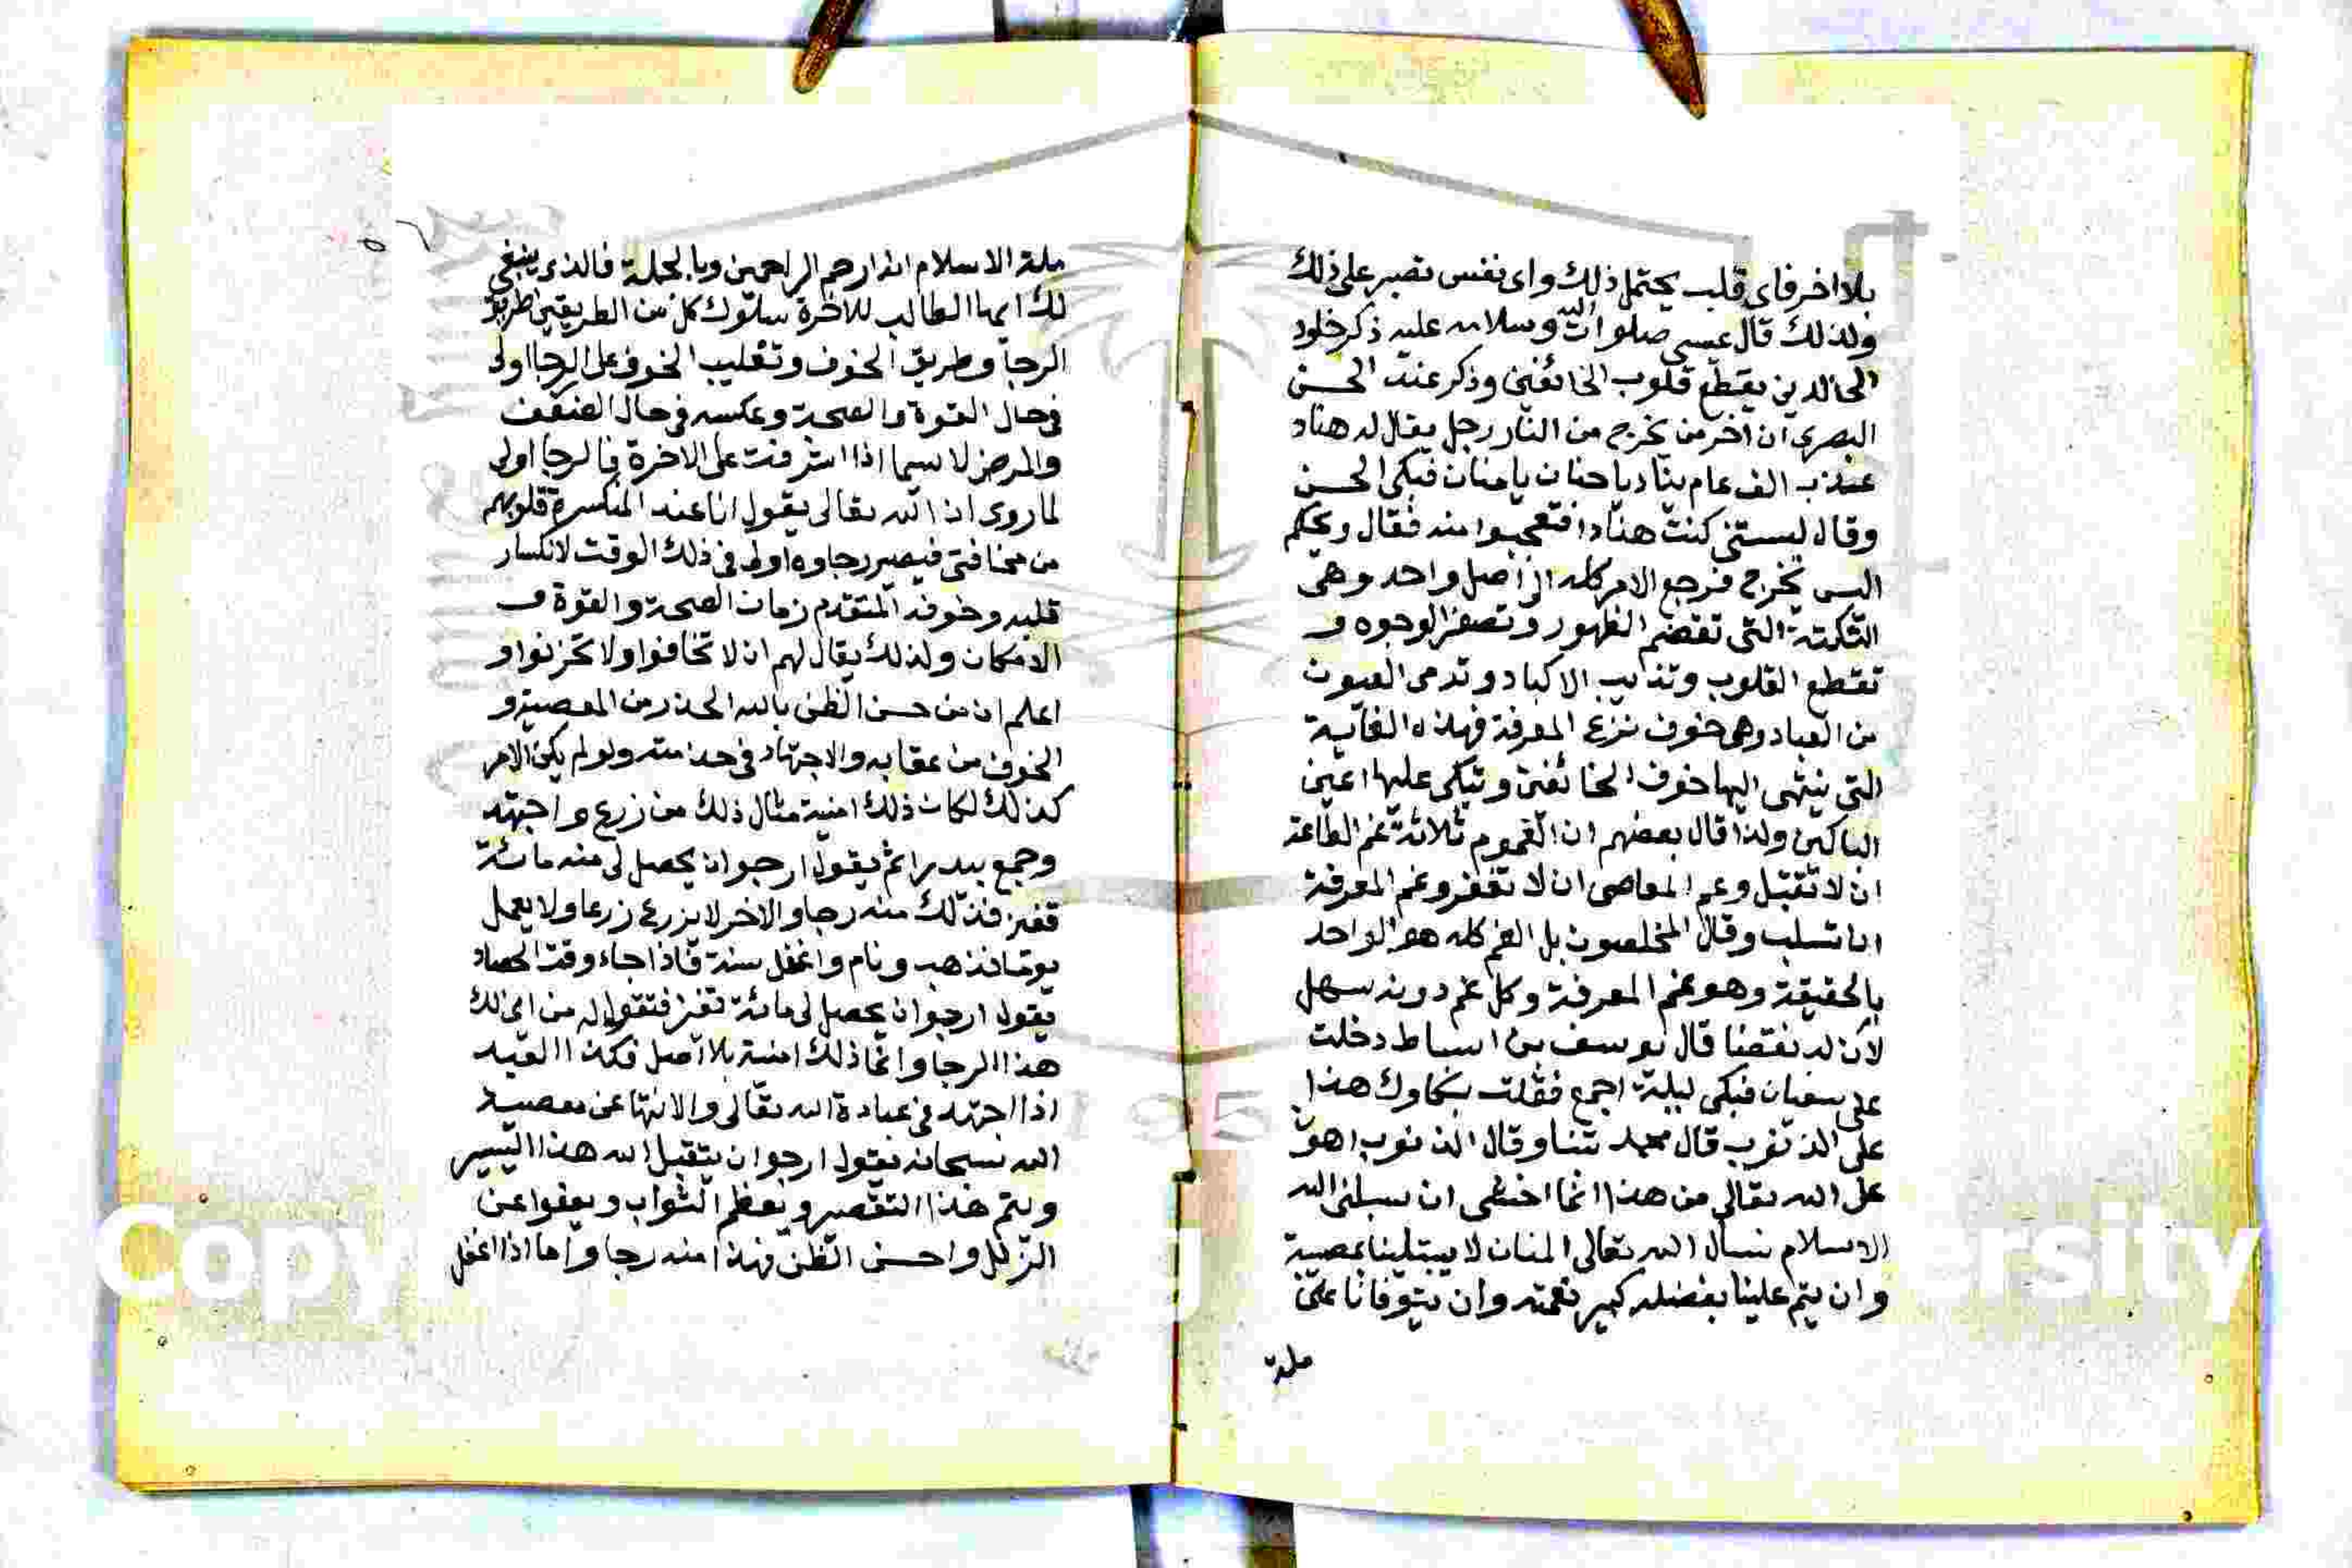 بلا اخر فاى قلب يحتمل ذلك واى نفس تصبر على ذلك
ولذلك قال عيسى صلوات الله وسلامه عليه ذكر خلود
الخالدين يقطع قلوب الخائفين وذكر عند الحسن
البصرى ان اخر من يخرج من النار رجل يقال له هناد
عذب الف عام ينادى يا حنان يا منان فبكى الحسن
وقال ليتنى كنت هنادا فتعجبوا منه فقال ويحكم
اليس يخرج فرجع الامر كله الى اصل واحد وهى
النكتة التى تقضم الظهور وتصفر الوجوه و
تقطع القلوب وتذيب الاكباد وتدمى العيون
من العباد وهى خوف نزع المعرفة فهذه الغاية
التى ينتهى اليها خوف الخائفين وتبكى عليها اعين
الباكين ولذا قال بعضهم ان الغموم ثلاثة غم الطاعة
ان لا تقبل وغم المعاصى ان لا تغفر وغم المعرفة
ان تسلب وقال المخلصون بل الغم كله هو الواحد
بالحقيقة وهو غم المعرفة وكل غم دونه سهل
لان له نقضنا قال يوسف بن اسباط دخلت
على سفيان فبكى ليلة اجمع فقلت بكاوك هذا
على الذنوب قال فحمد تبنا وقال الذنوب اهون
على الله تعالى من هذا انما اخشى ان يسلبنى الله
الاسلام نسال الله تعالى المنان لا يبتلينا بمصيبة
وان يتم علينا بفضله كبير نعمته وان يتوفانا على
ملة
٥٦
ملة الاسلام انه ارحم الراحمين وبالجملة فالذى ينبغى
لك ايها الطالب للاخرة سلوك كل من الطريقين طريق
الرجا وطريق الخوف وتغليب الخوف على الرجا اولى
فى حال القوة والصحة وعكسه فى حال الضعف
والمرض لا سيما اذا اشرفت على الاخرة فالرجا اولى
لما روى ان الله تعالى يقول انا عند المنكسرة قلوبهم
من مخافتى فيصير رجاوه اولى فى ذلك الوقت لانكسار
قلبه وخوفه المتقدم زمان الصحة والقوة و
الامكان ولذلك يقال لهم ان لا تخافوا ولا تحزنوا و
اعلم ان من حسن الظن بالله الحذر من المعصية و
الخوف من عقابه والاجتهاد فى خدامته ولو لم يكن الامر
كذلك لكان ذلك امنية مثال ذلك من زرع واجتهد
وجمع بيدرا ثم يقول ارجو ان يحصل لى منه مائة
قفيز فذلك منه رجا والاخر لا يزرع زرعا ولا يعمل
يوما فذهب ونام واغفل سنة فاذا جاء وقت الحصاد
يقول ارجو ان يحصل لى مائة قفيز فتقول له من اين لك
هذا الرجا وانما ذلك امنية بلا اصل فكذا العبد
اذا اجتهد فى عبادة الله تعالى والانتها عن معصية
الله سبحانه يقول ارجو ان يتقبل الله هذا اليسير
ويتم هذا التقصير ويعظم الثواب ويعفوا عن
الزلل واحسن الظن فهذا منه رجا واما اذا اغفل